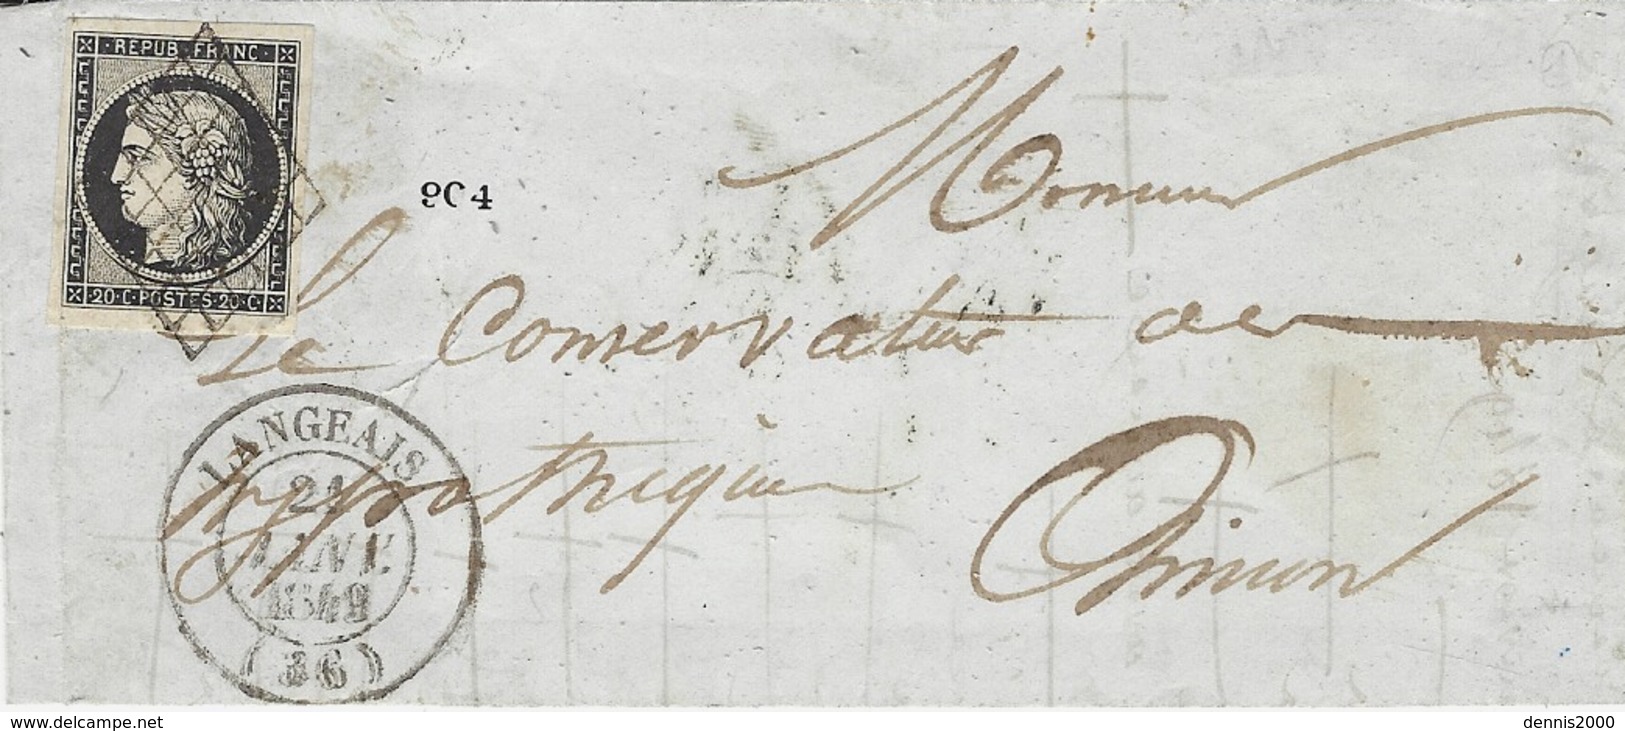 · REPUB · FRANC ·
· 20 · C · POSTES · 20 · C ·
904
Monsieur
Le Conservateur des
hypothèques
Chinon
LANGEAIS
21
JANV.
1849
(36)
dennis2000